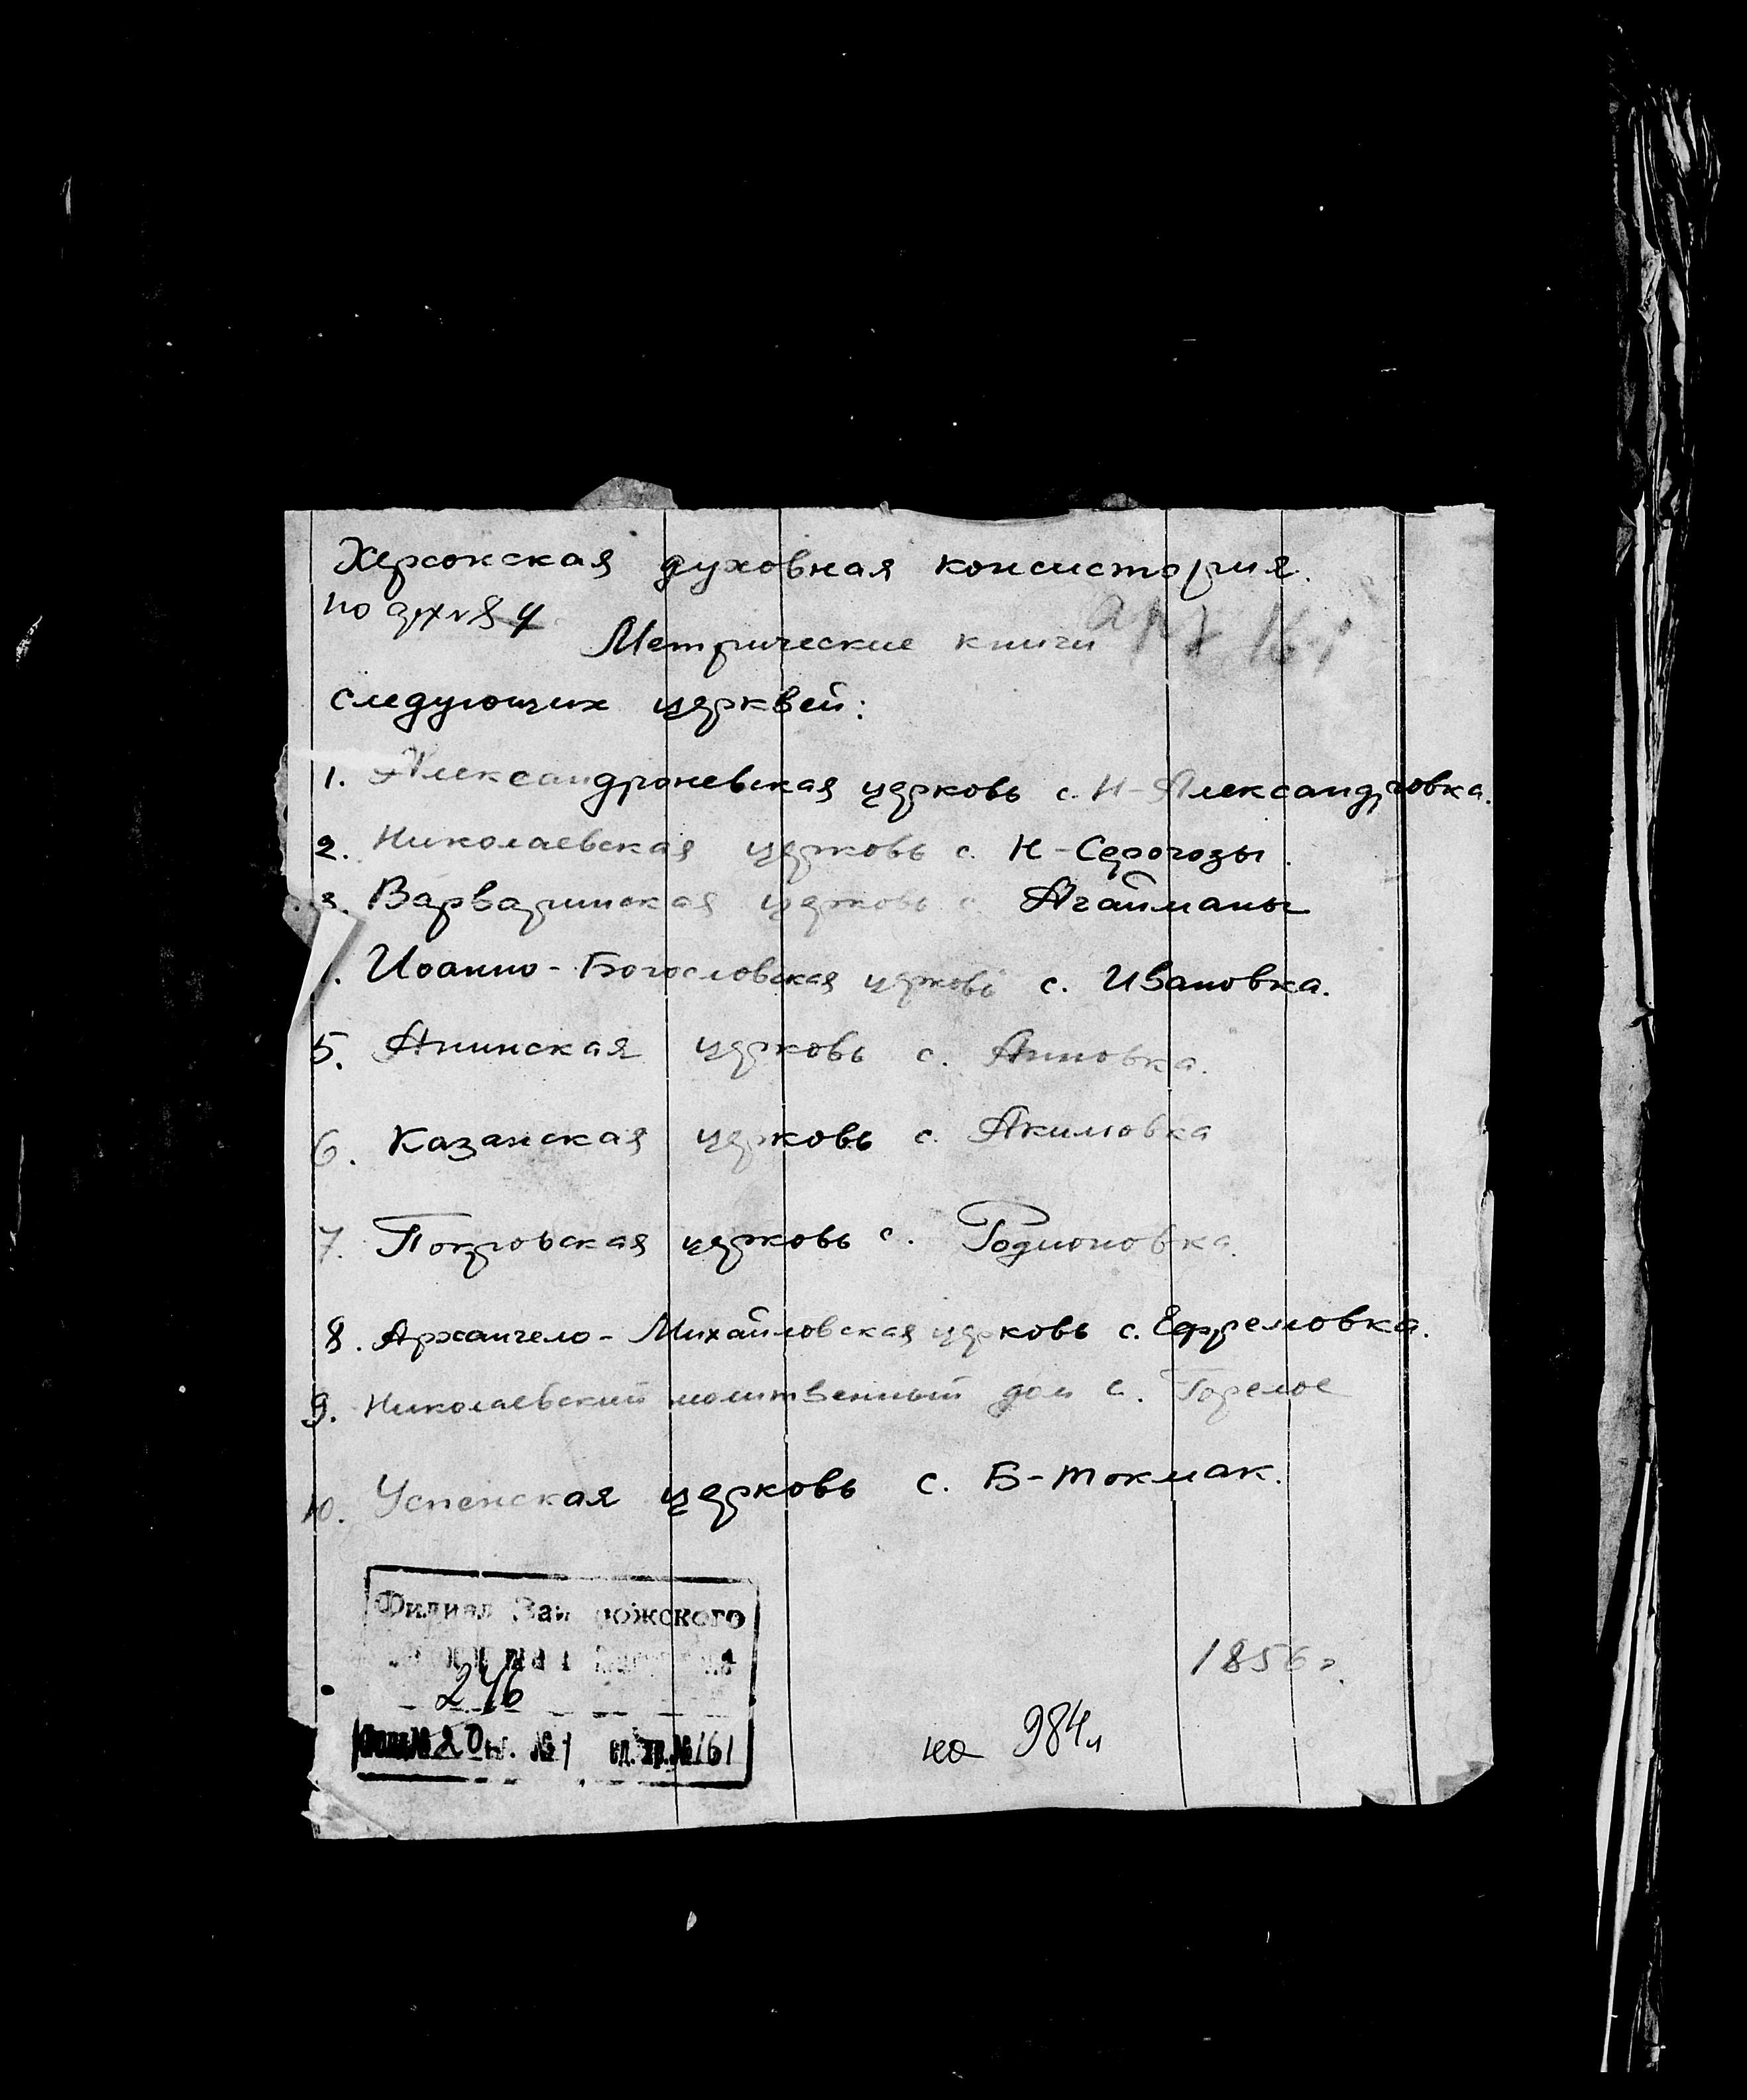 Херсонская духовная консистория.
по арх № 84
Метрические книги арх 161
следующих церквей:
1. Александроневская церковь с. Н-Александровка.
2. Николаевская церковь с. Н-Серогозы.
3. Варваринская церковь с. Агайманы
Иоанно-Богословская церковь с. Ивановка.
5. Аннинская церковь с. Анновка.
6. Казанская церковь с. Акимовка
7. Покровская церковь с. Родионовка.
8. Архангело-Михайловская церковь с. Ефремовка.
9. Николаевский молитвенный дом с. Горелое
10. Успенская церковь с. Б-Токмак.
Филиал
246
№ 1 ед. хр. № 161
1856 г.
на 984 л